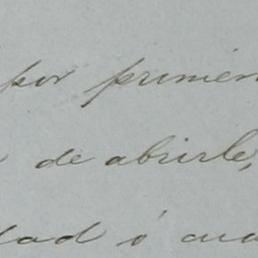 por primer
de abrirle,
dad ó cua